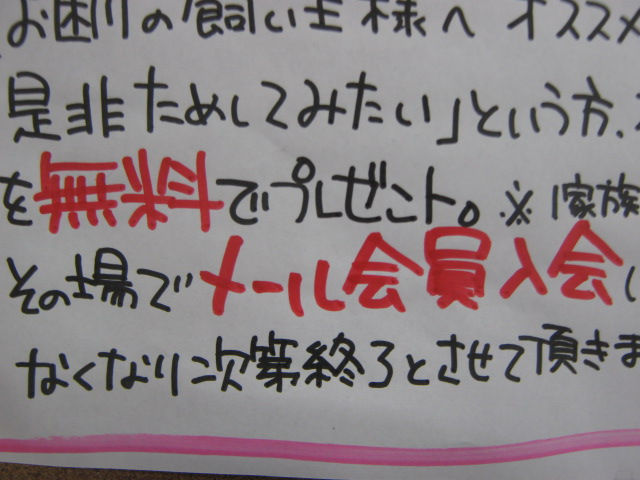 お困りの飼い主様へ オススメ
是非ためしてみたい」という方、
を無料でプレゼント。※家族
その場でメール会員入会
なくなり次第終了とさせて頂きま